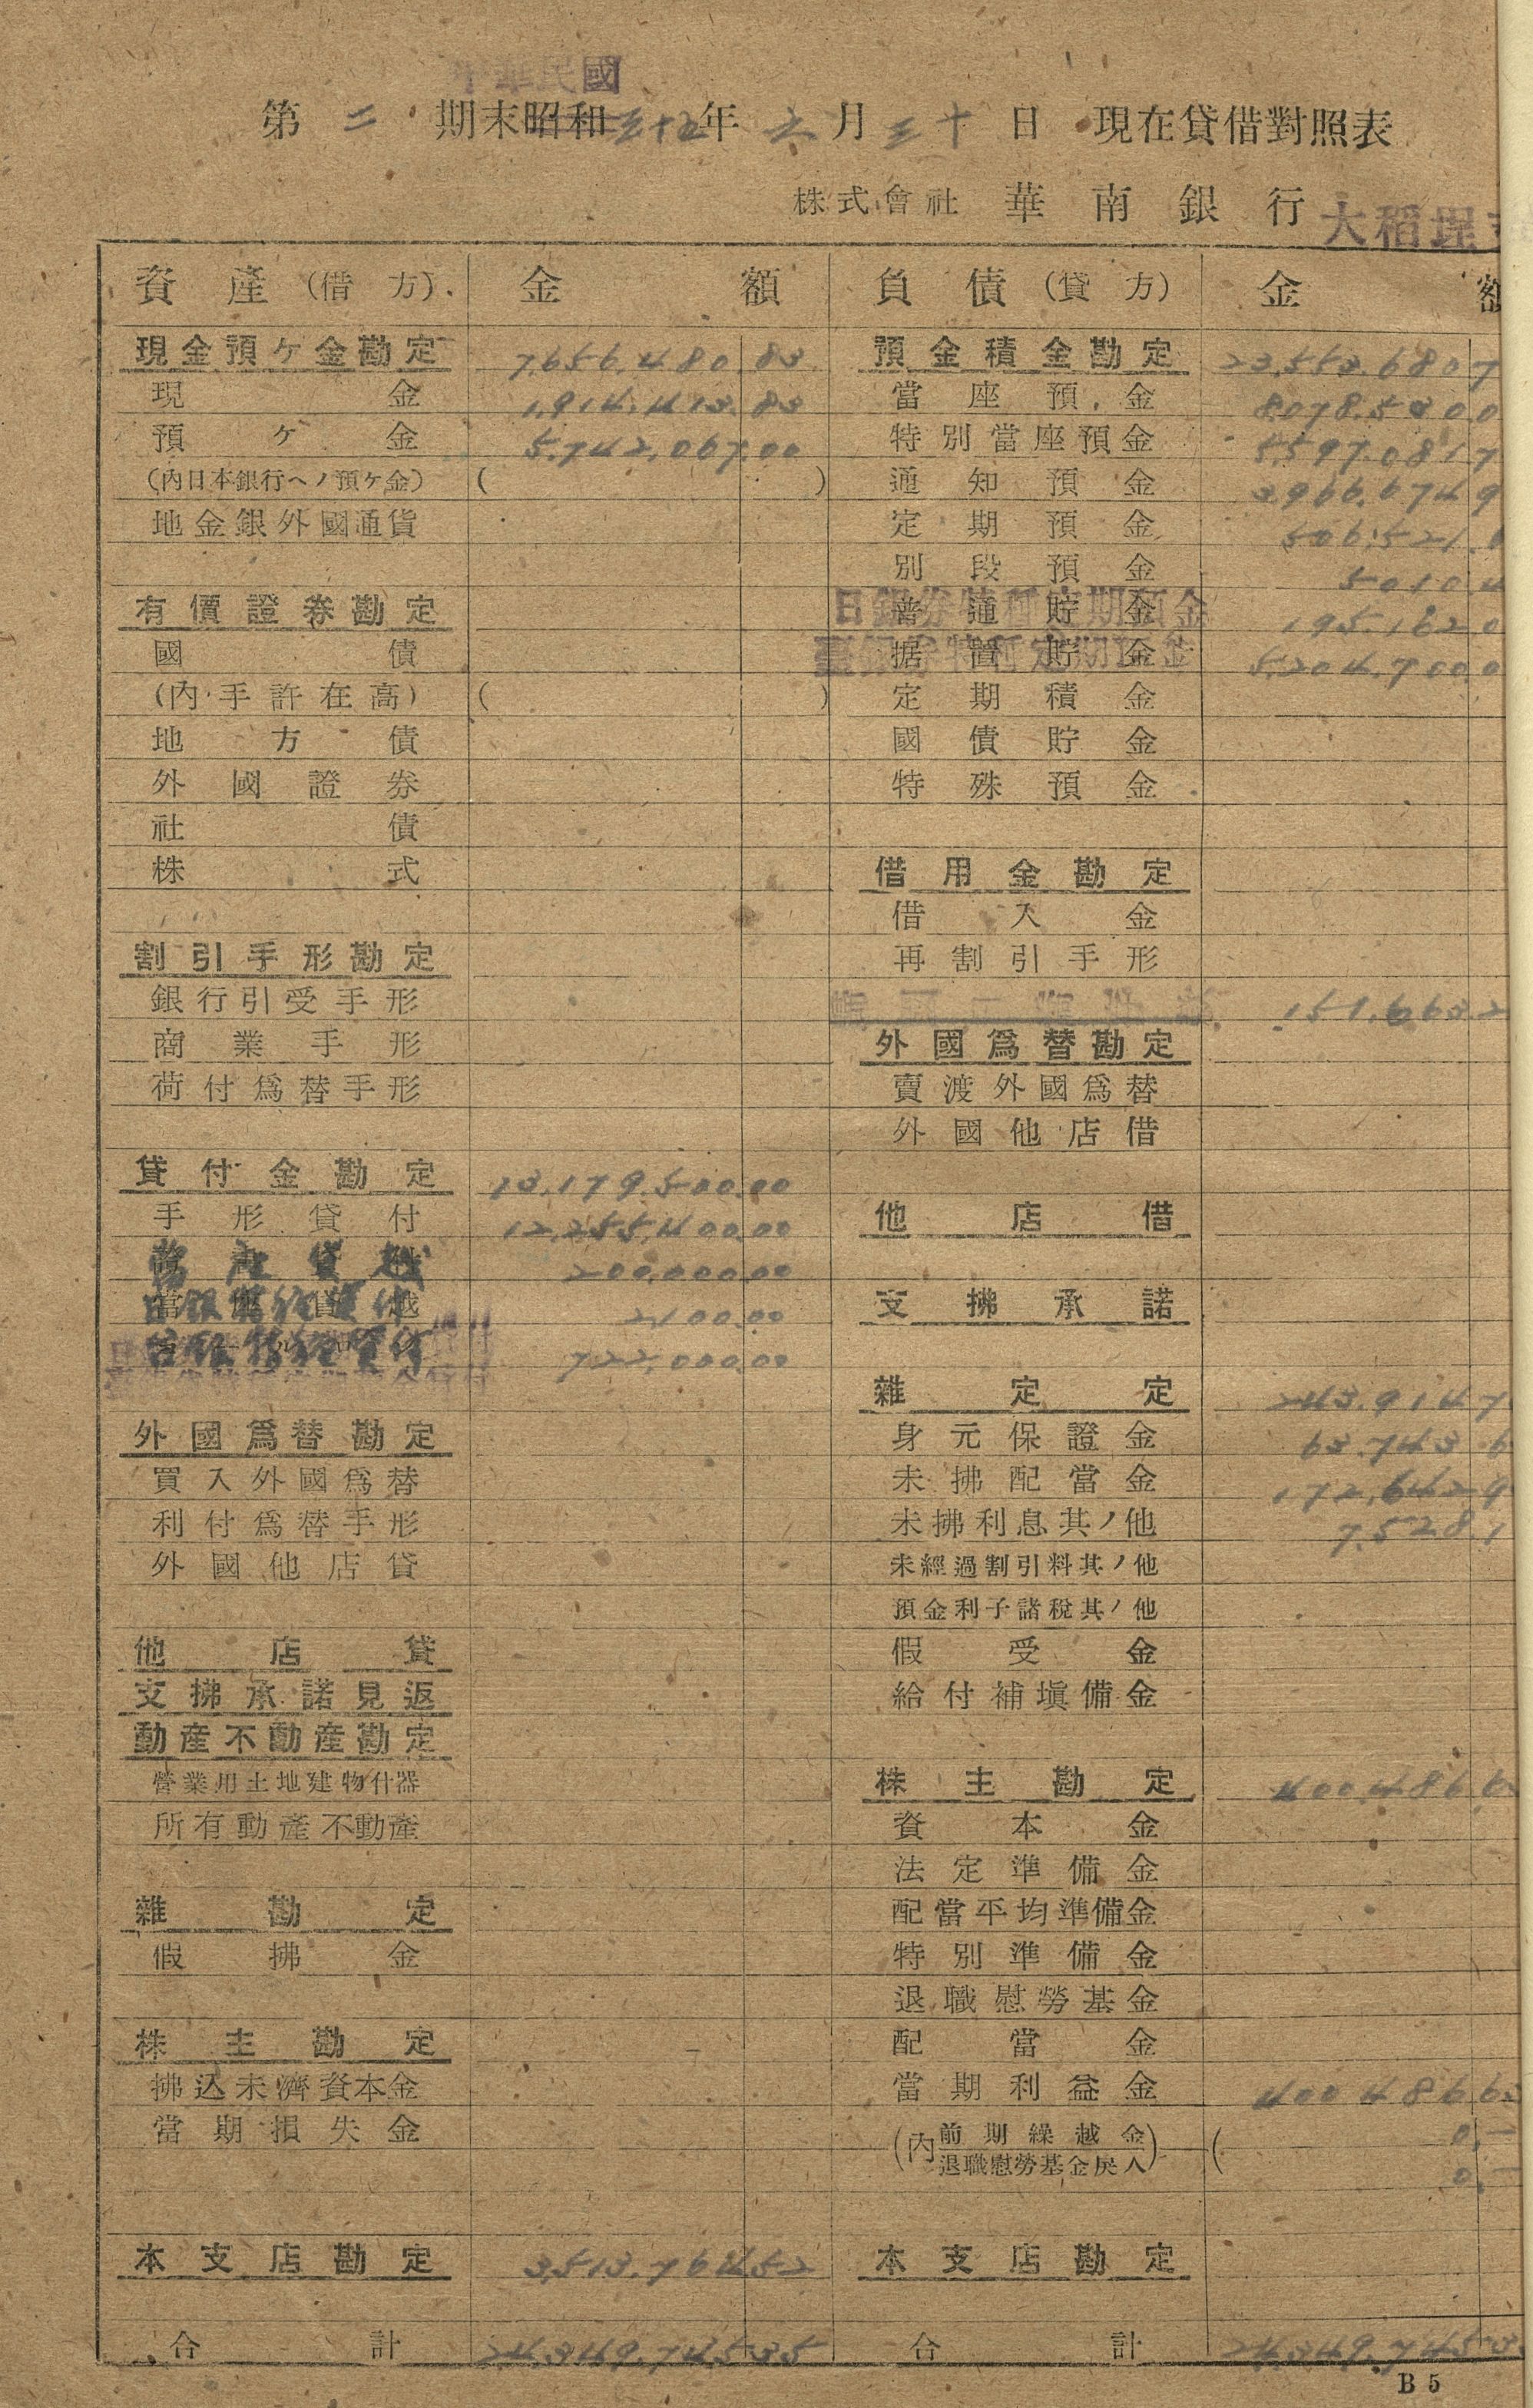 中華民國
第 二 期末昭和三十五年 六月三十日 現在貸借對照表
株式會社 華南銀行 大稻埕
資產(借方) 金額 負債(貸方) 金額
現金預ヶ金勘定 7,656,480.83 預金積金勘定 23,553,680 7
現金 1,914,413.83 當座預金 8,078,530 0
預ヶ金 5,742,067.00 特別當座預金 5,597,081 7
(內日本銀行ヘノ預ヶ金) ( ) 通知預金 3,966,674 9
地金銀外國通貨 定期預金 506,521
別段預金 5,010 4
有價證券勘定 普通貯金 日銀券特種定期預金 195,162 0
國債 据置貯金 臺銀券特種定期預金 5,204,700 0
(內手許在高) ( ) 定期積金
地方債 國債貯金
外國證券 特殊預金
社債
株式 借用金勘定
借入金
割引手形勘定 再割引手形
銀行引受手形 151,663 2
商業手形 外國爲替勘定
荷付爲替手形 賣渡外國爲替
外國他店借
貸付金勘定 13,179,500.00
手形貸付 12,255,400.00 他店借
當座貸越 200,000.00
當座貸越 2,100.00 支拂承諾
722,000.00
雜定定 243,914 7
外國爲替勘定 身元保證金 63,743 6
買入外國爲替 未拂配當金 172,642 9
利付爲替手形 未拂利息其ノ他 7,528 1
外國他店貸 未經過割引料其ノ他
預金利子諸稅其ノ他
他店貸 假受金
支拂承諾見返 給付補塡備金
動產不動產勘定
營業用土地建物什器 株主勘定 400,486 6
所有動產不動產 資本金
法定準備金
雜勘定 配當平均準備金
假拂金 特別準備金
退職慰勞基金
株主勘定 配當金
拂込未濟資本金 當期利益金 400,486 6
當期損失金 (內 前期繰越金 ( 0.—
退職慰勞基金戾入) 0.—
本支店勘定 3,513,764.52 本支店勘定
合計 24,349,745.35 合計 24,349,745 3
B5